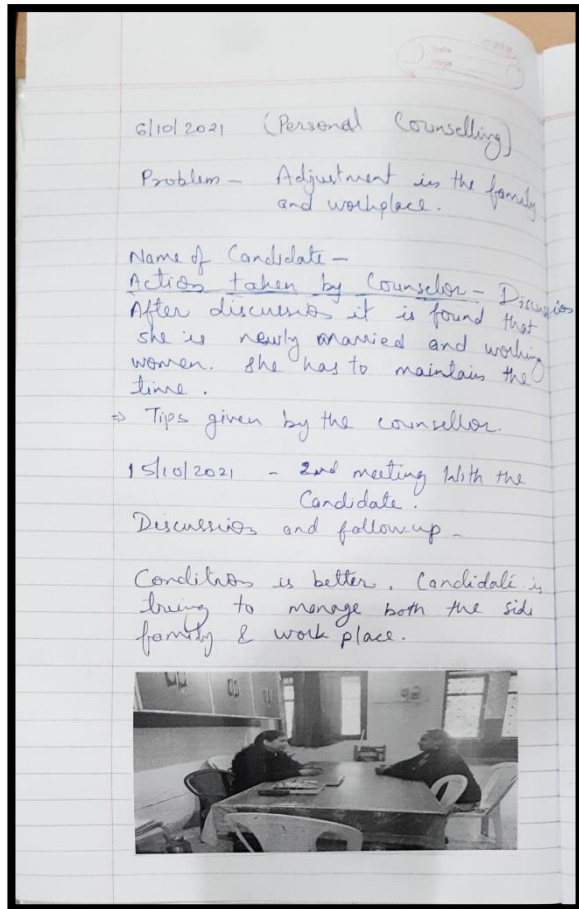 6/10/2021 (Personal Counselling)
Problem - Adjustment in the family
and workplace.
Name of Candidate -
Action taken by Counselor - Discussion
After discussion it is found that
she is newly married and working
women. She has to maintain the
time.
⇒ Tips given by the counsellor.
15/10/2021 - 2nd meeting With the
Candidate.
Discussion and follow up -
Condition is better. Candidate is
trying to manage both the side
family & work place.